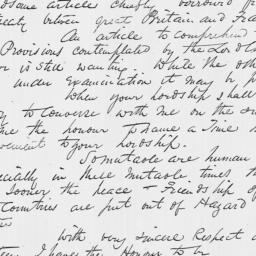 some article chiefly borrowed fr
eaty betwn great Britain and Fra
An article to comprehend
Provisions contemplated by the Lord Ch
or is still wanting. While the oth
under Examination it may be p
When your Lordship shall
to converse with me on the su
me the honour to name a time
venient to your Lordship.
So mutable are human
ecially in these mutable times, th
sooner the peace & Friendship of
Countries are put out of Hazard
ter
With very sincere Respect a
I have the Honour to be